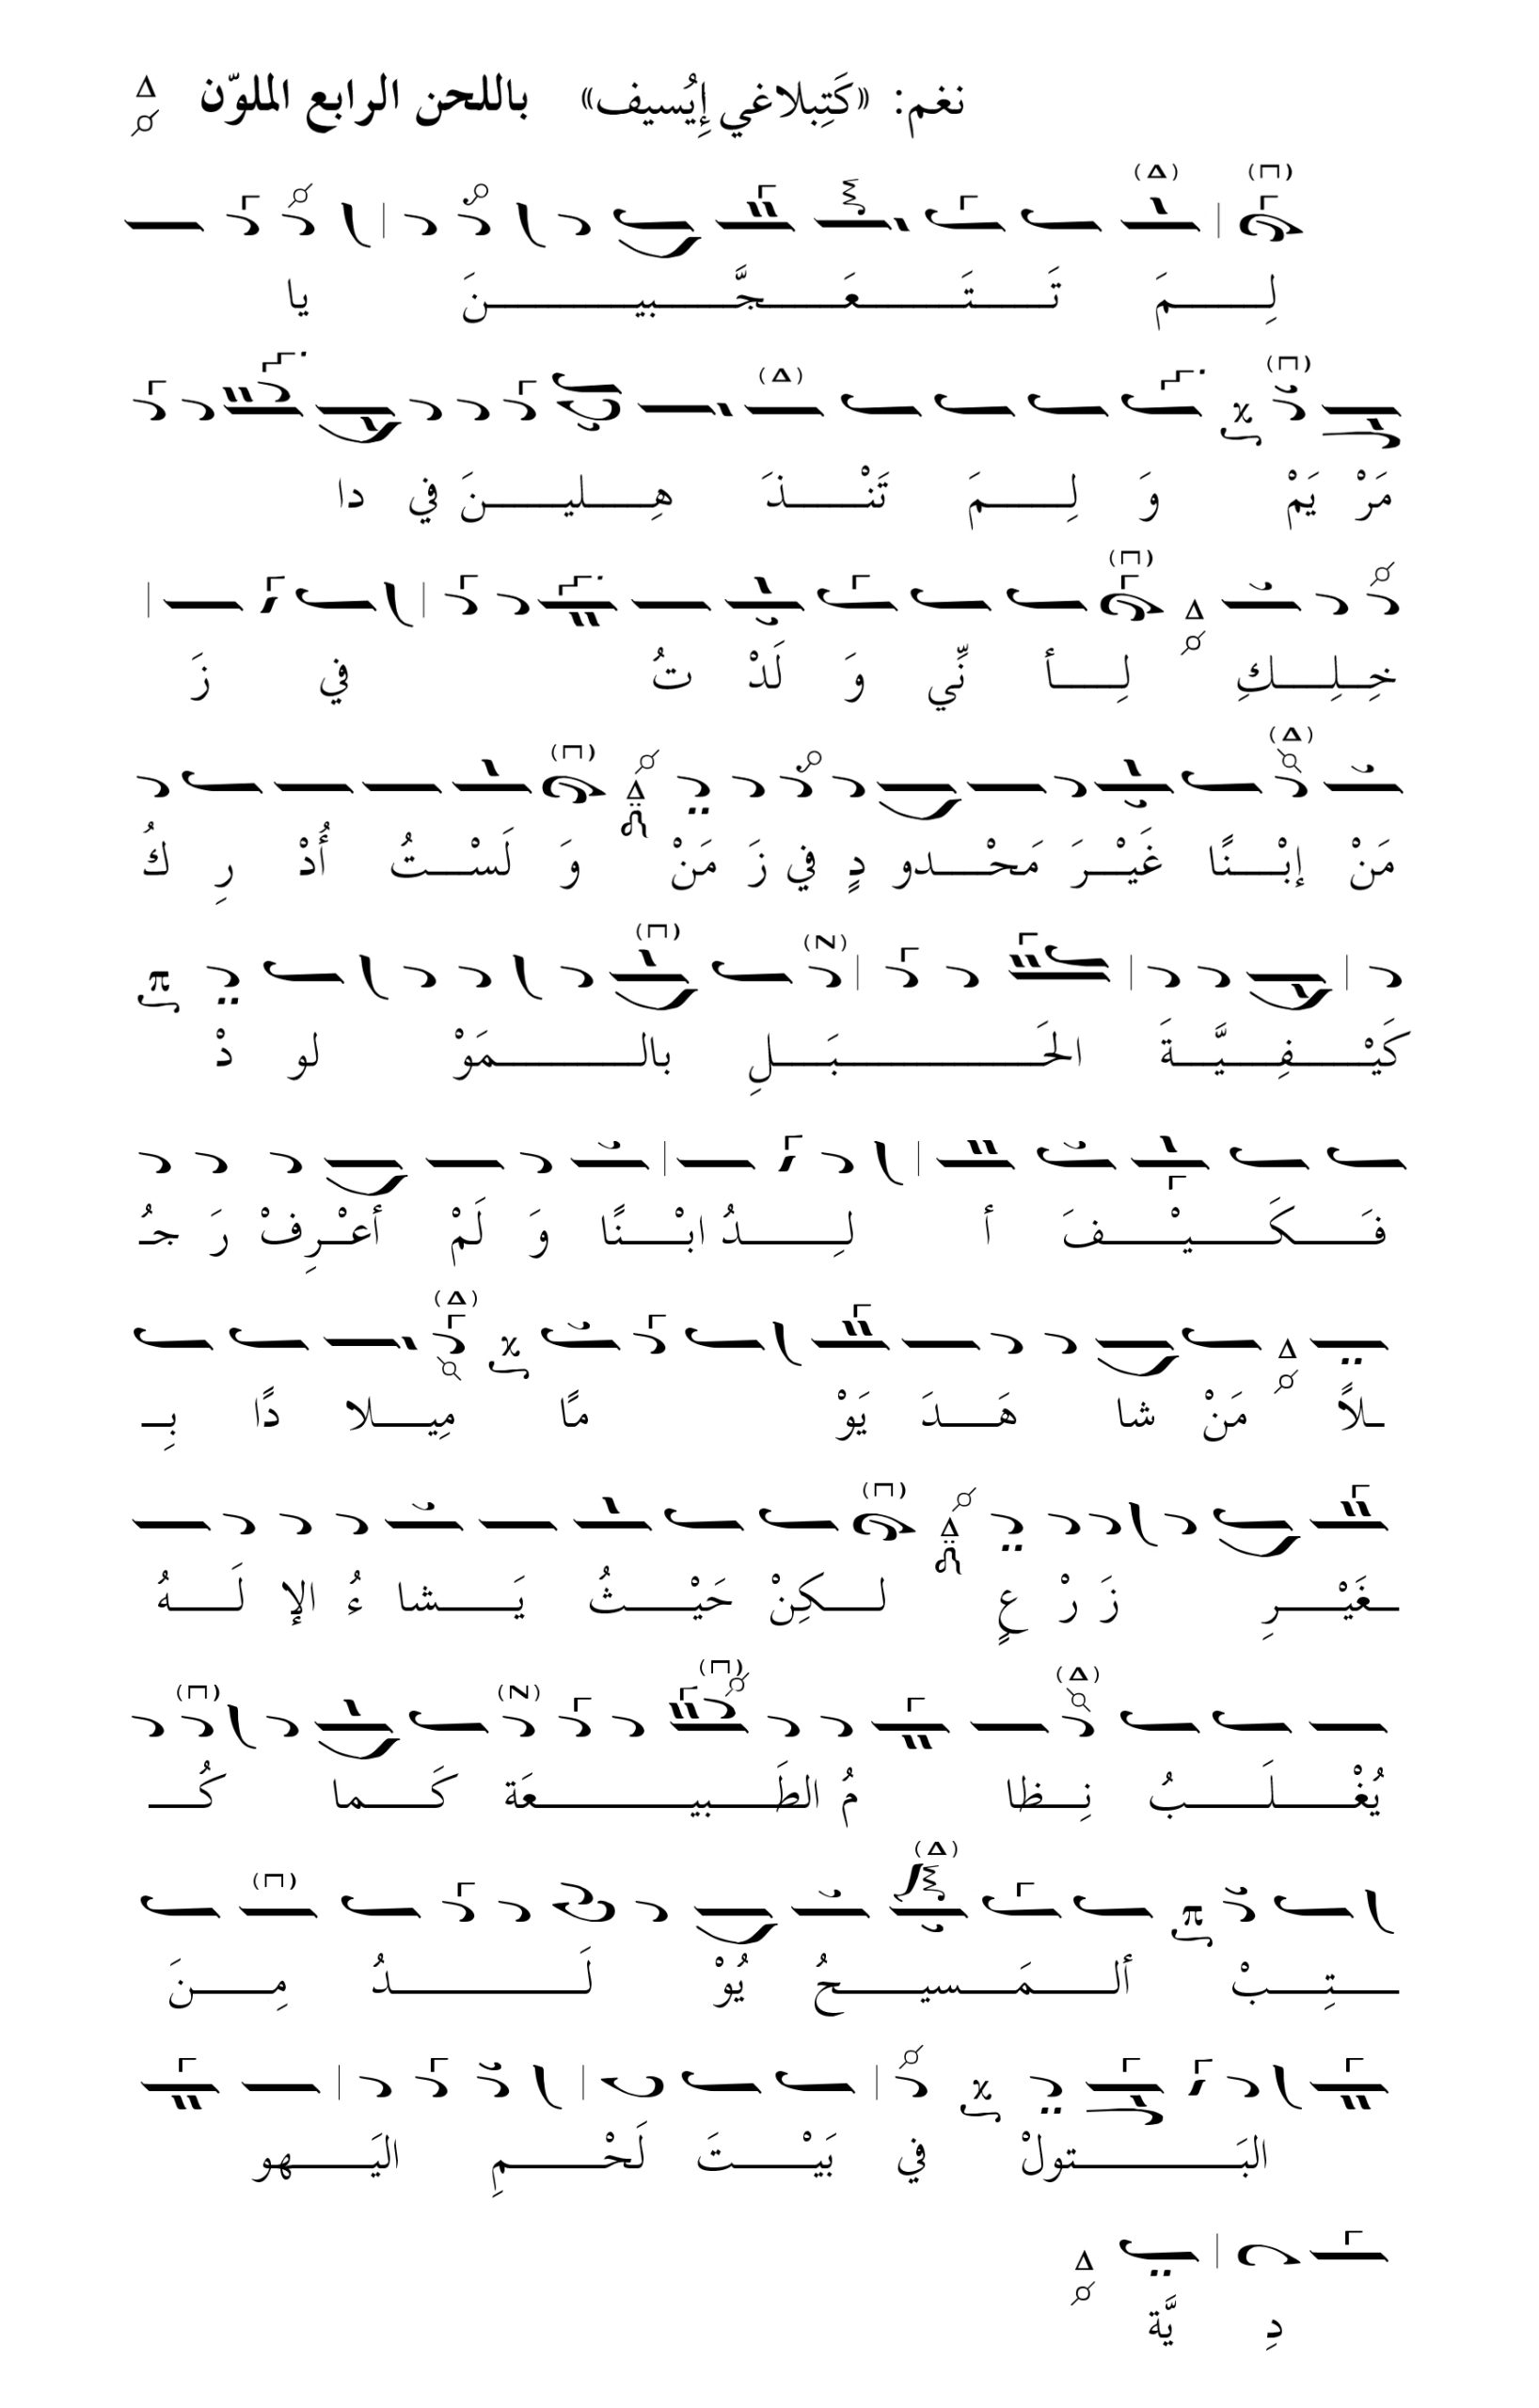 نغم: «كَتِبلاغي إِيُسيف» باللحن الرابع الملوّن
لِـــمَ تَـــتَـــعَـــجَّـــبيـــنَ يا
مَرْ يَمْ وَ لِـــمَ تَنْـــذَ هِـــليـــنَ في دا
خِـلِـــكِ لِـــأ نِّي وَ لَدْ تُ في زَ
مَنْ إبْـــنًا غَيْـــرَ مَحْـــدو دٍ في زَ مَنْ وَ لَسْـــتُ أُدْ رِ كُ
كَيْـــفِـــيَّـــةَ الحَـــبَـــلِ بالـــمَوْ لو دْ
فَـــكَـــيْـــفَ أ لِـــدُ ابْـــنًا وَ لَمْ أعْـــرِفْ رَ جُـ
ـلاً مَنْ شا هَـــدَ يَوْ مًا مِيـــلا دًا بِـ
ـغَيْـــرِ زَ رْ عٍ لـــكِنْ حَيْـــثُ يَـــشا ءُ الإ لَـــهُ
يُغْـــلَـــبُ نِـــظا مُ الطَـــبيـــعَة كَـــما كُـ
ـتِـــبْ ألـــمَـــسيـــحُ يُوْ لَـــدُ مِـــنَ
البَـــتولْ في بَيْـــتَ لَحْـــمِ اليَـــهو
دِ يَّة